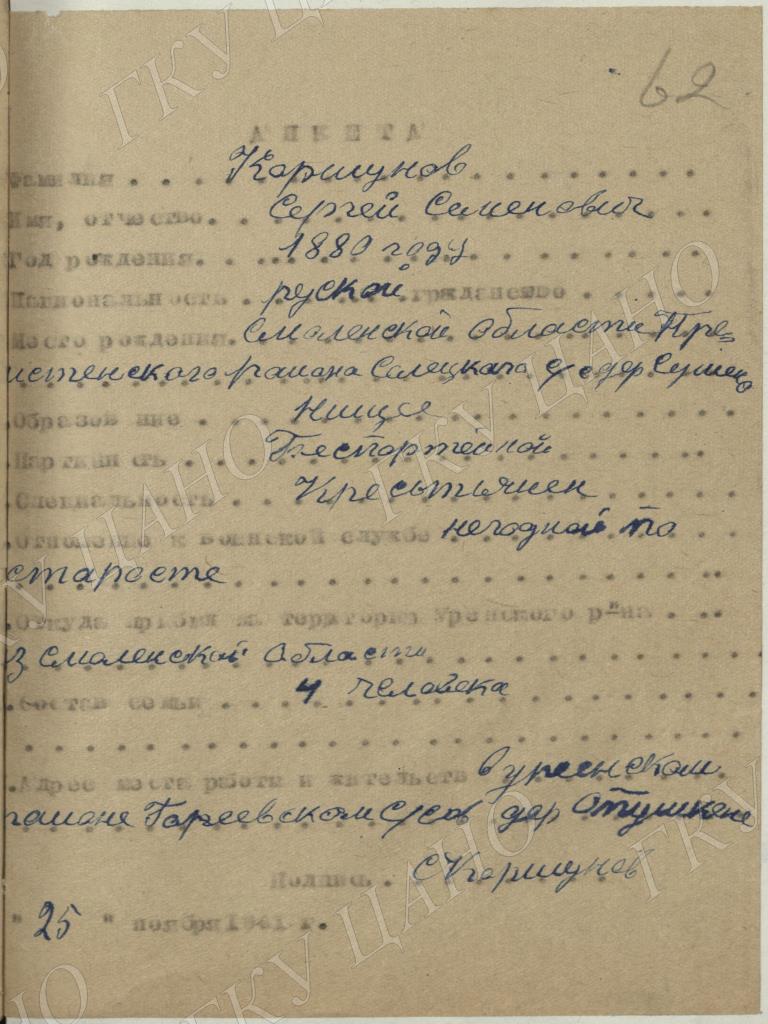 62
АНКЕТА
Фамилия . . . Коршунов . . . . . . . .
Имя, отчество. . Сергей Семенович . .
Год рождения. . . 1880 году . . . . . .
Национальность . руской . гражданство . . . . .
Место рождения. Смоленской области Пре-
истенского раиона Солецкого с/с дер
Образов ние . . . . нисше . . . . . . . .
Партийн сть . . . Беспортейной . . . . .
Специальность . . Крестьянен . . . . .
.Отношение к воинской службе негодной по . .
старосте . . . . . . . . . . . . . .
.Откуда прибыл на територию Уренского р"на . . .
з Смоленской области . . . . . . . . .
.Состав семьи . . . . 4 человека . . . . . . .
. . . . . . . . . . . . . . . . . . . .
.Адрес места работы и жительств в уренском
раионе Горевском с/сов дер
Подпись. . СКоршунов
" 25 " ноября 1941 г.
ГКУ ЦАНО